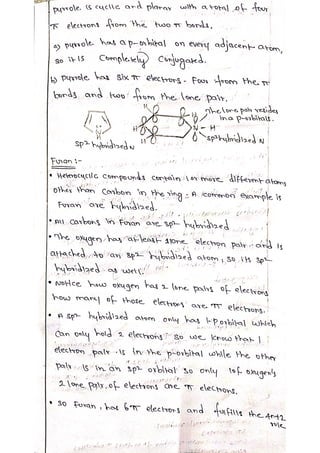 pyrrole is cyclic and planar with a total of four
π electrons from the two π bonds.
a) pyrrole has a p-orbital on every adjacent atom,
so it is completely conjugated.
b) pyrrole has six π electrons - Four from the π
bonds and two from the lone pair.
The lone pair resides
in a p-orbitals.
H
H
N - H
H
H
sp2 hybridized N
sp2 hybridized N
Furan :-
• Heterocyclic compounds contain 1 or more different atoms
other than Carbon in the ring. A common example is
Furan are hybridized.
• All carbons in Furan are sp2 hybridized
• The oxygen has at least 1 lone electron pair and is
attached to an sp2 hybridized atom, so its sp2
hybridized as well.
• Notice how oxygen has 2 lone pairs of electrons
how many of those electrons are π electrons.
• A sp2 hybridized atom only has 1-p orbital which
can only hold 2 electrons so we know that 1
electron pair is in the p-orbital while the other
pair is in an sp2 orbital so only 1 of oxygen's
2 lone pair of electrons are π electrons.
• So Furan, has 6π electrons and fulfills the 4n+2
rule